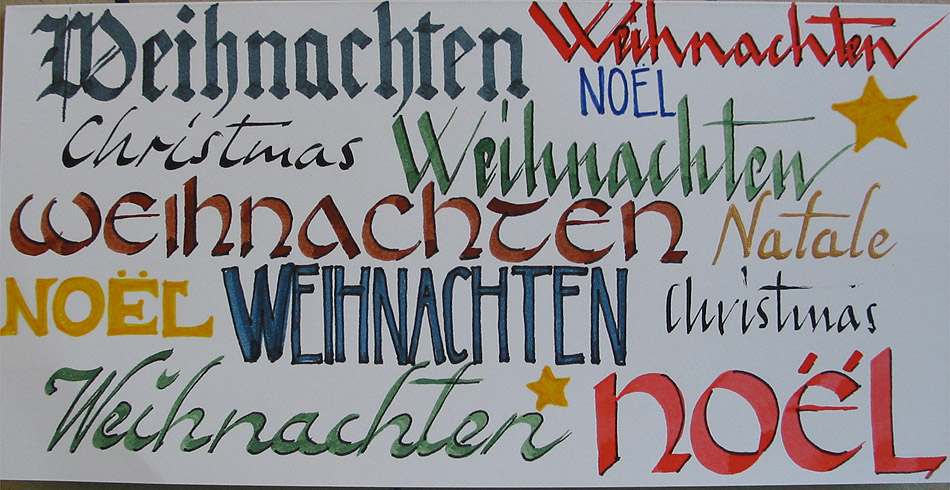 Weihnachten Weihnachten
NOËL
Christmas Weihnachten
WEIHNACHTEN Natale
NOËL WEIHNACHTEN Christmas
Weihnachten NOËL